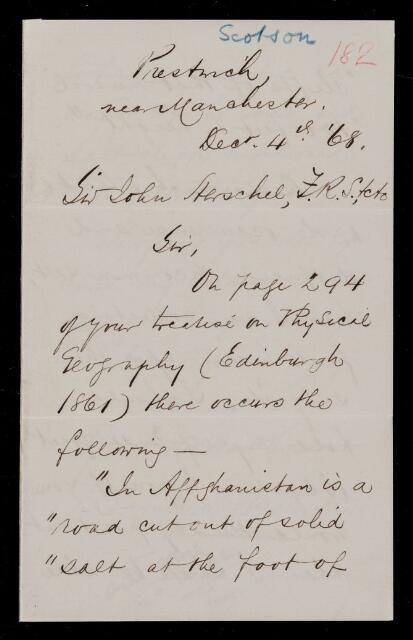 Scotson
182
Prestwich,
near Manchester.
Decr. 4th. '68.
Sir John Herschel, F.R.S., &c &c
Sir,
On page 294
of your treatise on Physical
Geography (Edinburgh
1861) there occurs the
following —
"In Affghanistan is a
"road cut out of solid
"salt at the foot of